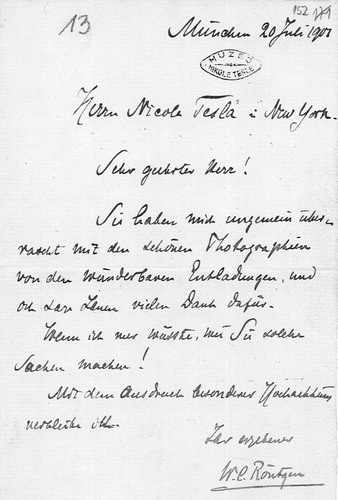 13
152 179
München 20 Juli 1901
MUZEJ NIKOLE TESLE
Herrn Nicola Tesla i New York.
Sehr geehrter Herr!
Sie haben mich ungemein über-
rascht mit den schönen Photographien
von den wunderbaren Entladungen, und
ich sage Ihnen vielen Dank dafür.
Wenn ich nur wüsste, wie Sie solche
Sachen machen!
Mit dem Ausdruck besonderer Hochachtung
verbleibe ich
Ihr ergebener
W. C. Röntgen